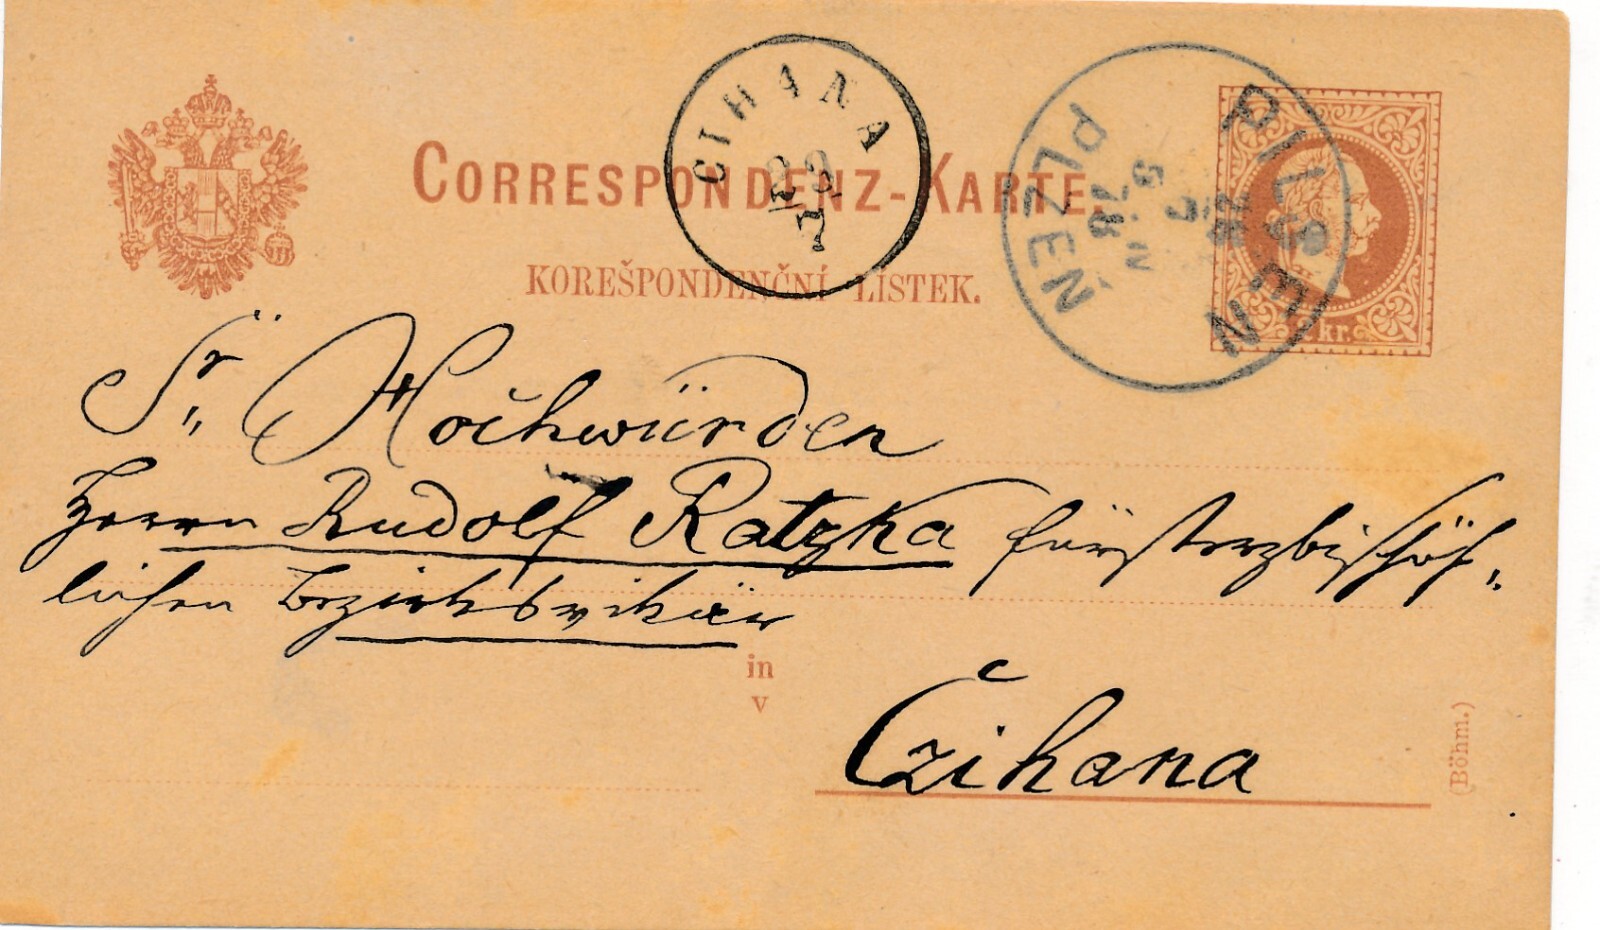 CORRESPONDENZ-KARTE.
KOREŠPONDENČNÍ LÍSTEK.
CIHANA
7
PILSEN
PLZEN
5 7
78
IV
2 kr.
Sr. Hochwürden
Herrn Rudolf Ratzka fürsterzbischöf-
lichen Bezirksvikär
in
v
Čzihana
(Böhm.)